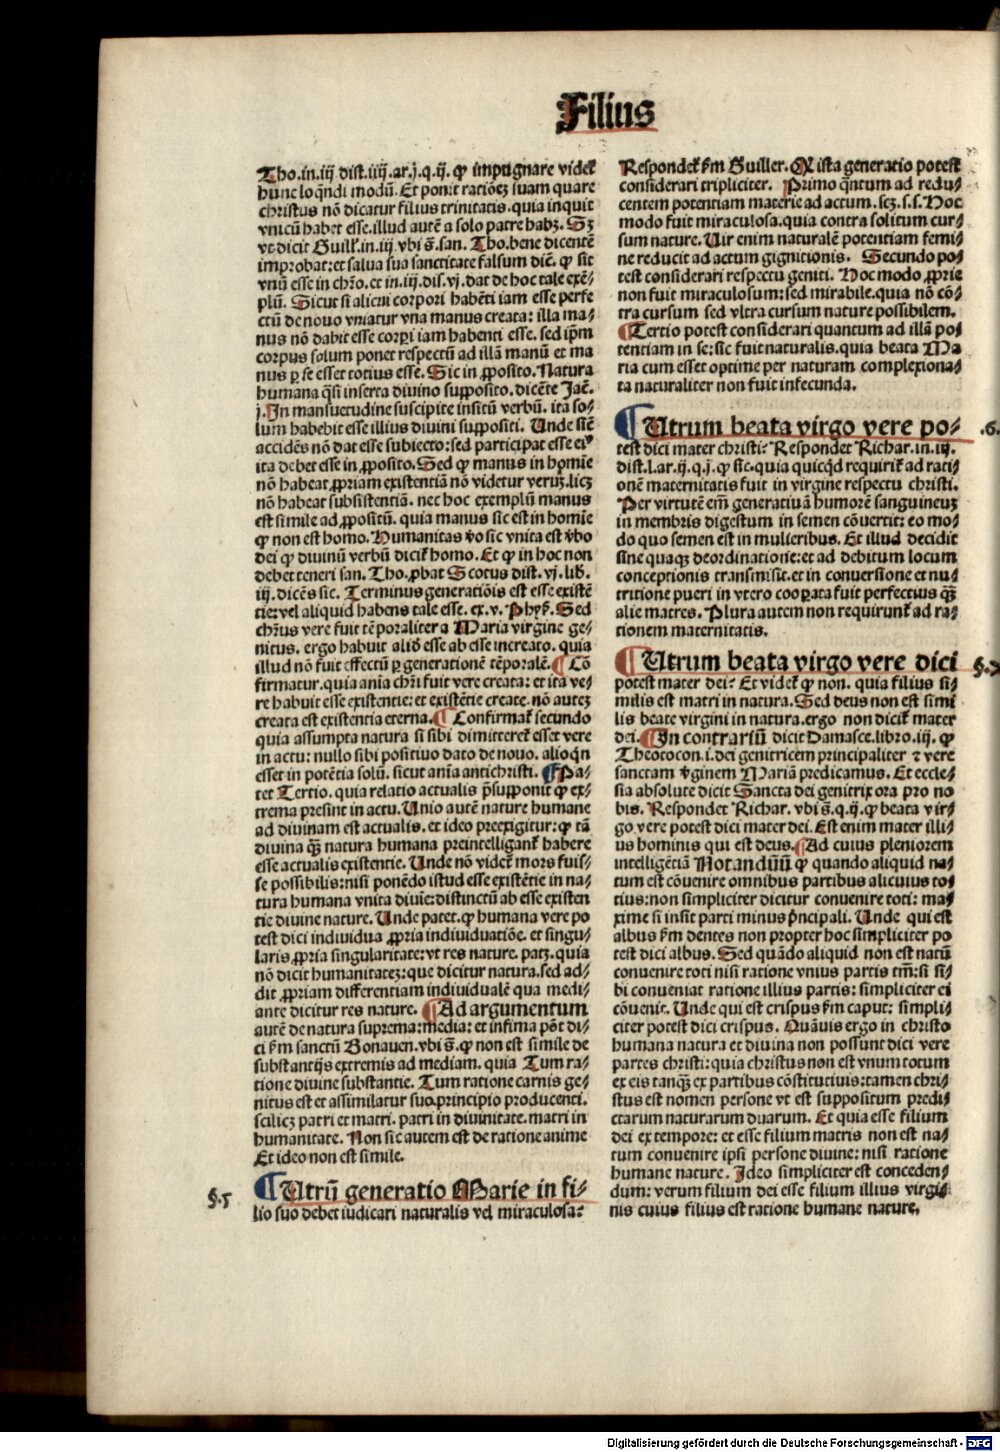 Filius
Tho.in.iij dist.iiij.ar.j.q.ij. ꝙ impugnare videt᷑
hunc loq̄ndi modū. Et ponit ratiōeꝫ suam quare
christus nō dicatur filius trinitatis.quia inquit
vnicū habet esse.illud autē a solo patre habꝫ. Sꝫ
vt dicit Guill̕.in.iij vbi s̄.san. Tho.bene dicentē
improbat:et salua sua sanctitate falsum dic̄. ꝙ sit
vnū esse in chr̄o.et in.iij.dis.vj.dat de hoc tale exē-
plū. Sicut si alicui corpori habēti iam esse perfe
ctū de nouo vniatur vna manus creata: illa ma-
nus nō dabit esse corpi iam habenti esse. sed ip̄m
corpus solum ponet respectū ad illā manū et ma
nus ꝑ se esset totius esse. Sic in ꝓposito. Natura
humana q̄si inserta diuino supposito.dicēte Jac̄.
j. In mansuetudine suscipite insitū verbū. ita so-
lum habebit esse illius diuini suppositi. Unde sic̄
accidēs nō dat esse subiecto:sed participat esse eiꝰ
ita debet esse in ꝓposito. Sed ꝙ manus in homīe
nō habeat ꝓpriam existentiā nō videtur verūꝫ.licꝫ
nō habeat subsistentiā. nec hoc exemplū manus
est simile ad ꝓpositū. quia manus sic est in homīe
ꝙ non est homo. Humanitas v̄o sic vnita est v̄bo
dei ꝙ diuinū verbū dicit᷑ homo. Et ꝙ in hoc non
debet teneri san. Tho.ꝓbat Scotus dist. vj. lib̄.
iij. dicēs sic. Terminus generatiōis est esse existē
tie:vel aliquid habens tale esse. ex.v. Phys̄. Sed
chr̄us vere fuit tēporaliter a Maria virgine ge-
nitus. ergo habuit aliđ esse ab esse increato. quia
illud nō fuit effectū ꝑ generationē tēporalē. ¶ Cō
firmatur.quia anīa chr̄i fuit vere creata: et ita ve-
re habuit esse existentie: et existētie create. nō auteꝫ
creata est existentia eterna. ¶ Confirmat᷑ secundo
quia assumpta natura si sibi dimitteret᷑ esset vere
in actu: nullo sibi positiuo dato de nouo. alioq̄n
esset in potētia solū. sicut anīa antichristi. ¶ Pa-
tet Tertio. quia relatio actualis p̄supponit ꝙ ex-
trema presint in actu. Unio autē nature humane
ad diuinam est actualis. et ideo preexigitur: ꝙ tā
diuina q̄ꝫ natura humana preintelligant᷑ habere
esse actualis existentie. Unde nō videt᷑ mors fuis-
se possibilis:nisi ponēdo istud esse existētie in na-
tura humana vnita diuīe: distinctū ab esse existen
tie diuine nature. Unde patet.ꝙ humana vere po
test dici indiuidua ꝓpria indiuiduatiōe. et singu-
laris ꝓpria singularitate: vt res nature. patꝫ.quia
nō dicit humanitateꝫ: que dicitur natura.sed ad-
dit ꝓpriam differentiam indiuidualē qua medi-
ante dicitur res nature. ¶ Ad argumentum
autē de natura suprema:media: et infima pōt di-
ci ẜm sanctū Bonauen.vbi s̄.ꝙ non est simile de
substantijs extremis ad mediam. quia Tum ra-
tione diuine substantie. Tum ratione carnis ge-
nitus est et assimilatur suo.principio producenti.
scilicꝫ patri et matri. patri in diuinitate.matri in
humanitate. Non sic autem est de ratione anime
Et ideo non est simile.
§.5
¶ Utrū generatio Marie in fi-
lio suo debet iudicari naturalis vel miraculosa?
Respondet᷑ ẜm Guiller. Qꝫ ista generatio potest
considerari tripliciter. Primo q̄ntum ad redu-
centem potentiam materie ad actum. scꝫ.s.s. Hoc
modo fuit miraculosa.quia contra solitum cur-
sum nature. Uir enim naturalē potentiam femi-
ne reducit ad actum gignitionis. Secundo po-
test considerari respectu geniti. Hoc modo ꝓprie
non fuit miraculosum: sed mirabile.quia nō cō-
tra cursum sed vltra cursum nature possibilem.
¶ Tertio potest considerari quantum ad illā po-
tentiam in se: sic fuit naturalis. quia beata Ma
ria cum esset optime per naturam complexiona-
ta naturaliter non fuit infecunda.
¶ Utrum beata virgo vere po-
.6.
test dici mater christi? Respondet Richar.in.iij.
dist.l.ar.ij.q.j.ꝙ sic.quia quicq̄d requirit᷑ ad rati-
onē maternitatis fuit in virgine respectu christi.
Per virtutē em̄ generatiuā humorē sanguineuꝫ
in membris digestum in semen cōuertit: eo mo-
do quo semen est in mulieribus. Et illud decidit
sine quaqꝫ deordinatione: et ad debitum locum
conceptionis transmisit. et in conuersione et nu-
tritione pueri in vtero cooꝑata fuit perfectius q̄ꝫ
alie matres. Plura autem non requirunt᷑ ad ra-
tionem maternitatis.
¶ Utrum beata virgo vere dici
§.7
potest mater dei? Et videt᷑ ꝙ non. quia filius si-
milis est matri in natura. Sed deus non est simi
lis beate virgini in natura.ergo non dicit᷑ mater
dei. ¶ In contrariū dicit Damasce.libro.iij. ꝙ
Theotocon.i.dei genitricem principaliter ⁊ vere
sanctam v̄ginem Mariā predicamus. Et eccle-
sia absolute dicit Sancta dei genitrix ora pro no
bis. Respondet Richar. vbi s̄.q.ij.ꝙ beata vir-
go vere potest dici mater dei. Est enim mater illi-
us hominis qui est deus. ¶ Ad cuius pleniorem
intelligētiā Notandū ꝙ quando aliquid na-
tum est cōuenire omnibus partibus alicuius to-
tius:non simpliciter dicitur conuenire toti: ma-
xime si insit parti minus p̄ncipali. Unde qui est
albus ẜm dentes non propter hoc simpliciter po
test dici albus. Sed quādo aliquid non est natū
conuenire toti nisi ratione vnius partis tm̄: si si-
bi conueniat ratione illius partis: simpliciter ei
cōuenit. Unde qui est crispus ẜm caput: simpli-
citer potest dici crispus. Quāuis ergo in christo
humana natura et diuina non possunt dici vere
partes christi: quia christus non est vnum totum
ex eis tanq̄ꝫ ex partibus cōstitutiuis: tamen chri-
stus est nomen persone vt est suppositum predi-
ctarum naturarum duarum. Et quia esse filium
dei ex tempore: et esse filium matris non est na-
tum conuenire ipsi persone diuine: nisi ratione
humane nature. Ideo simpliciter est conceden-
dum: verum filium dei esse filium illius virgi-
nis cuius filius est ratione humane nature.
Digitalisierung gefördert durch die Deutsche Forschungsgemeinschaft - DFG